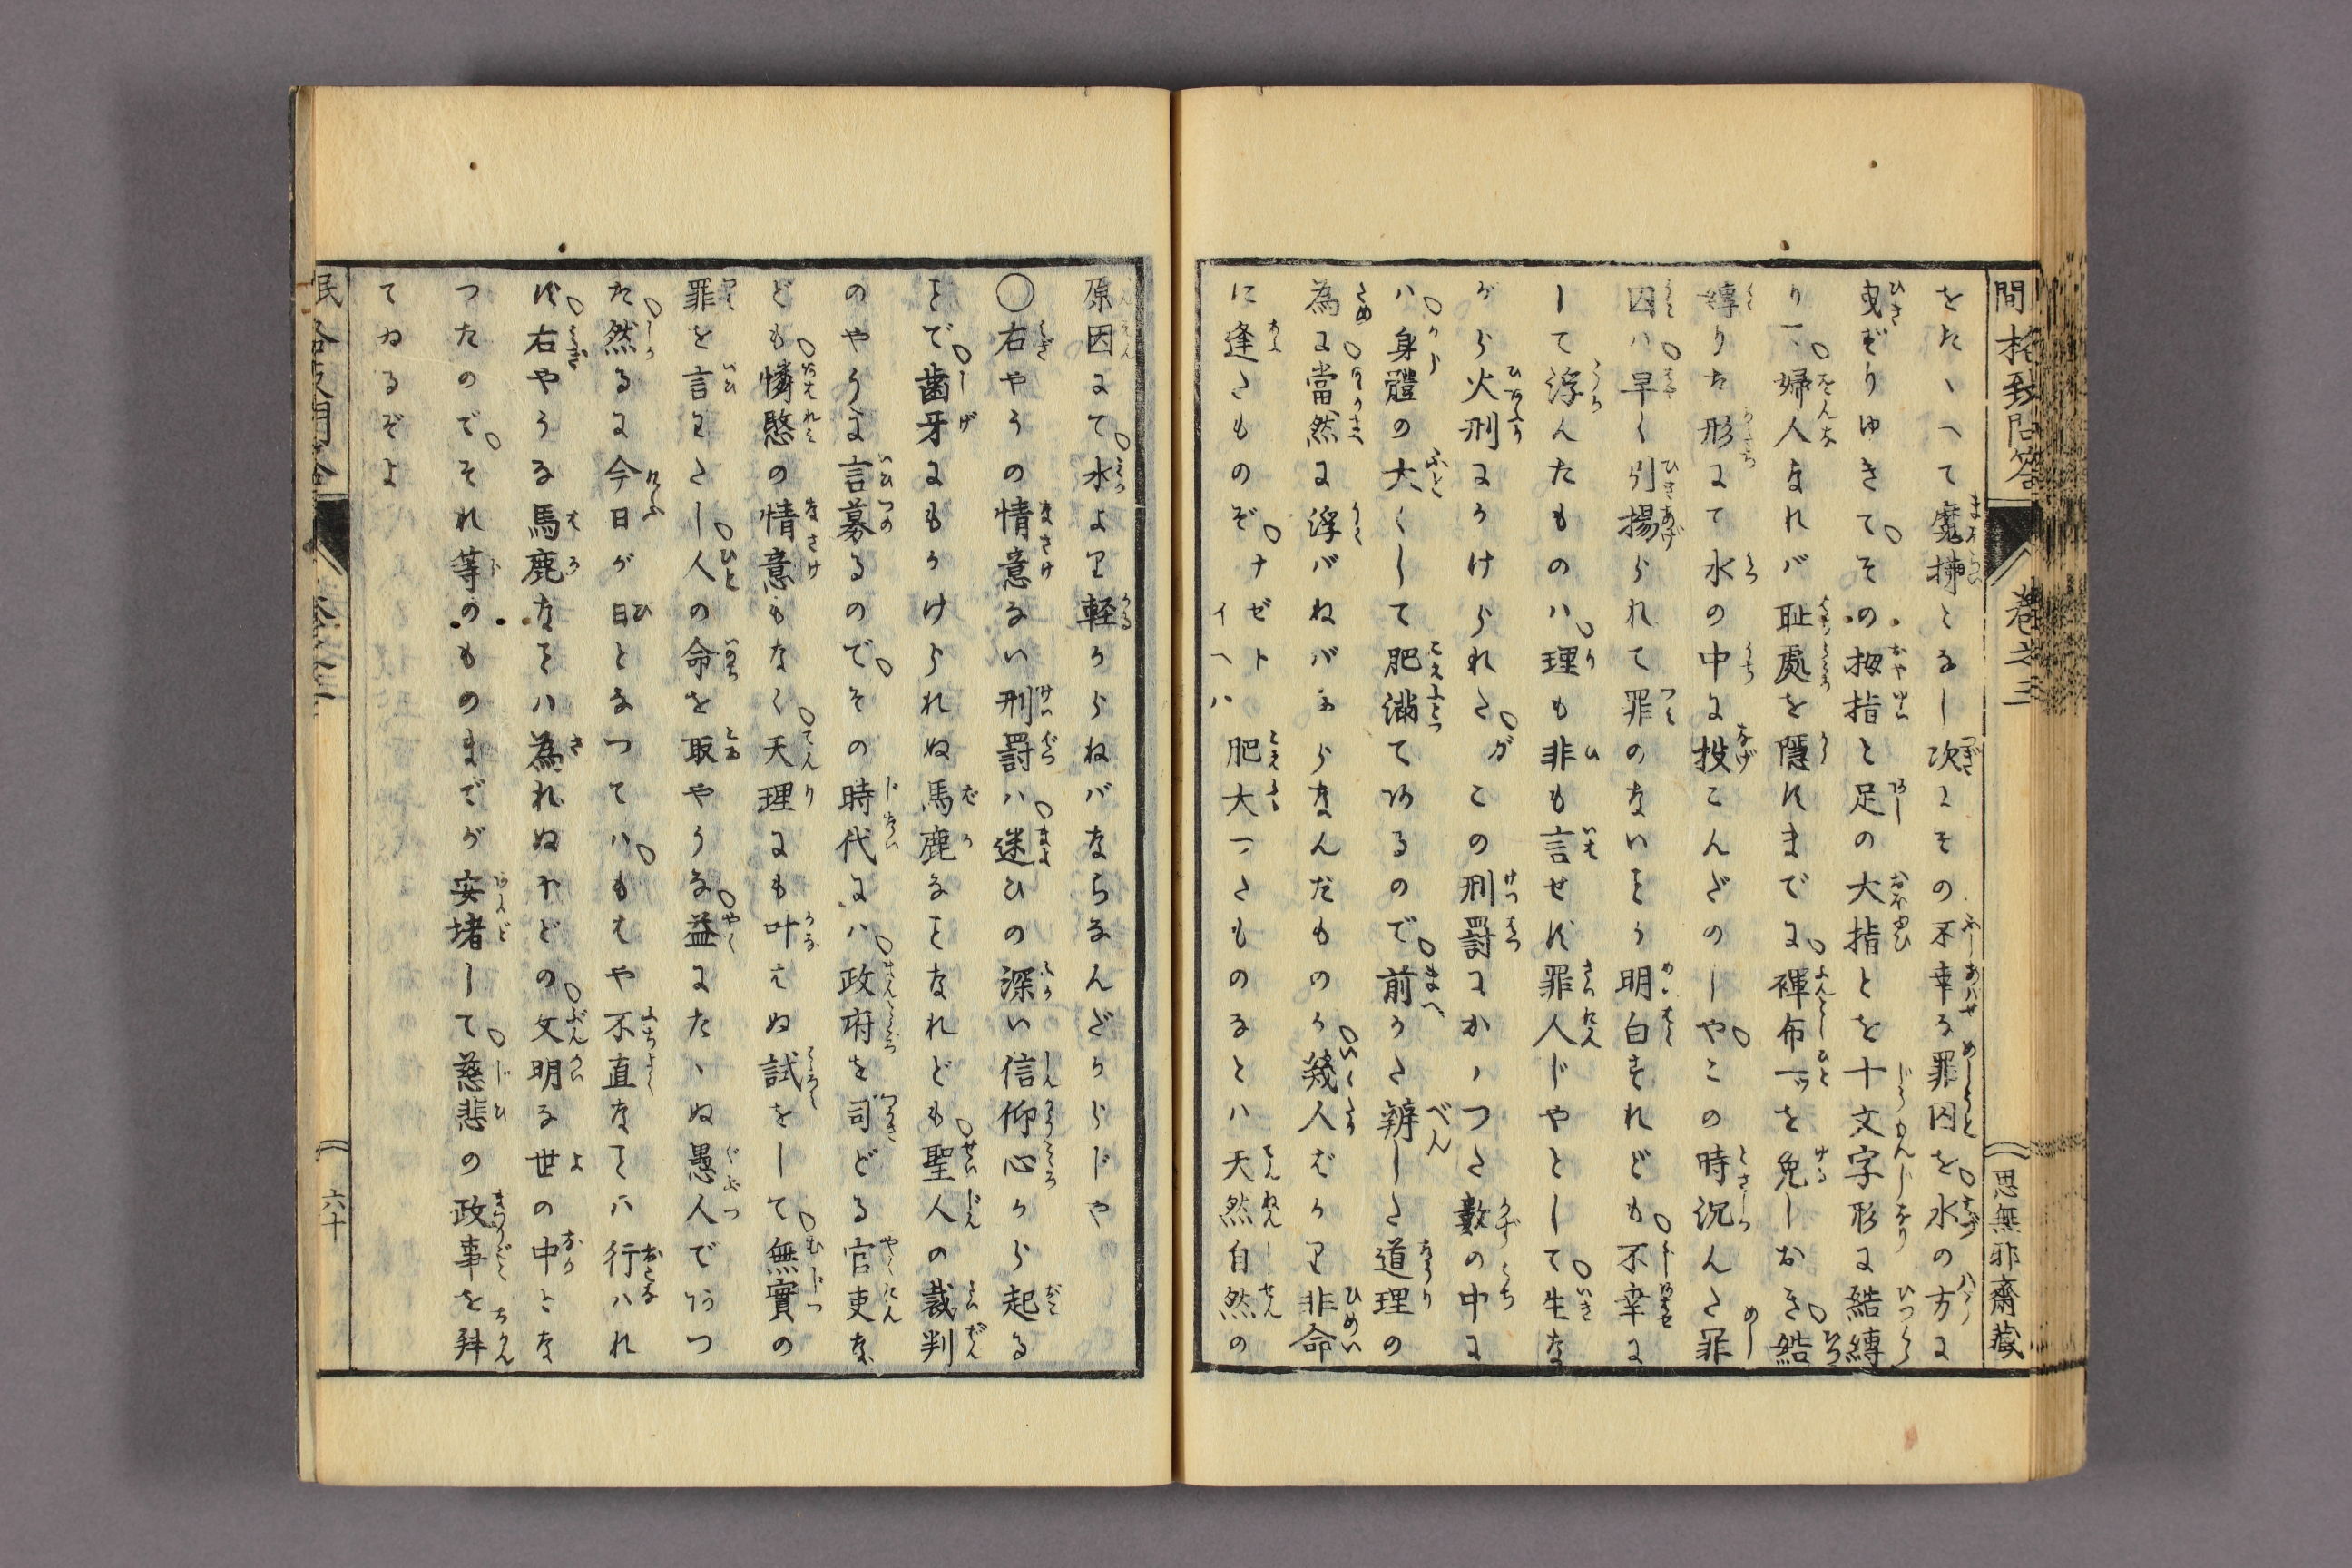 をたゝへて魔拂となし次にその不幸な罪囚を水の方に
曳ずりゆきてその拇指と足の大指とを十文字形に結縛
り一婦人なれバ耻處を隱すまでに褌布一ツを免しおき結
縛りた形にて水の中に投こんだのしやこの時况んだ罪
囚ハ早く引揚られて罪のないことう明白されども不幸に
して浮んたものハ理も非も言せず罪人じやとして生な
がら火刑にかけられたがこの刑罰にかゝつた數の中に
ハ身體の大くして肥滿てゐるので前かた辨した道理の
為に當然に浮バねバならなんだものが幾人ばかり非命
に逢たものぞナゼトイヘハ肥大ゐたものなとハ天然自然の
原因にて水より軽からねバならなんだからじや
○右やうの情意ない刑罰ハ迷ひの深い信仰心から起る
ことで歯牙にもかけられぬ馬鹿なことなれども聖人の裁判
のやうに言募るのでその時代にハ政府を司どる官吏な
ども憐愍の情意もなく天理にも叶はぬ試をして無實の
罪を言わたし人の命を取やうな益にたゝぬ愚人であつ
た然るに今日が日となつてハもはや不直なことハ行ハれ
ず右やうな馬鹿なことハ為れぬほどの文明な世の中とな
つたのでそれ等のものまでが安堵して慈悲の政事を拜
てゐるぞよ
間格致問答
卷之三
思無邪齋藏
六十